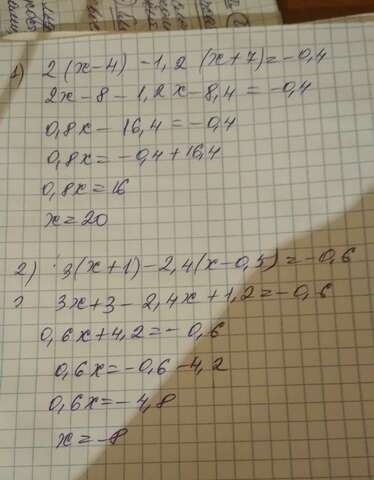 1) 2(x-4) -1,2 (x+7)=-0,4
2x-8-1,2x-8,4 = -0,4
0,8x-16,4=-0,4
0,8x=-0,4+16,4
0,8x=16
x=20
2) 3(x+1)-2,4(x-0,5)=-0,6
3x+3-2,4x+1,2=-0,6
0,6x+4,2=-0,6
0,6x=-0,6-4,2
0,6x=-4,8
x=-8